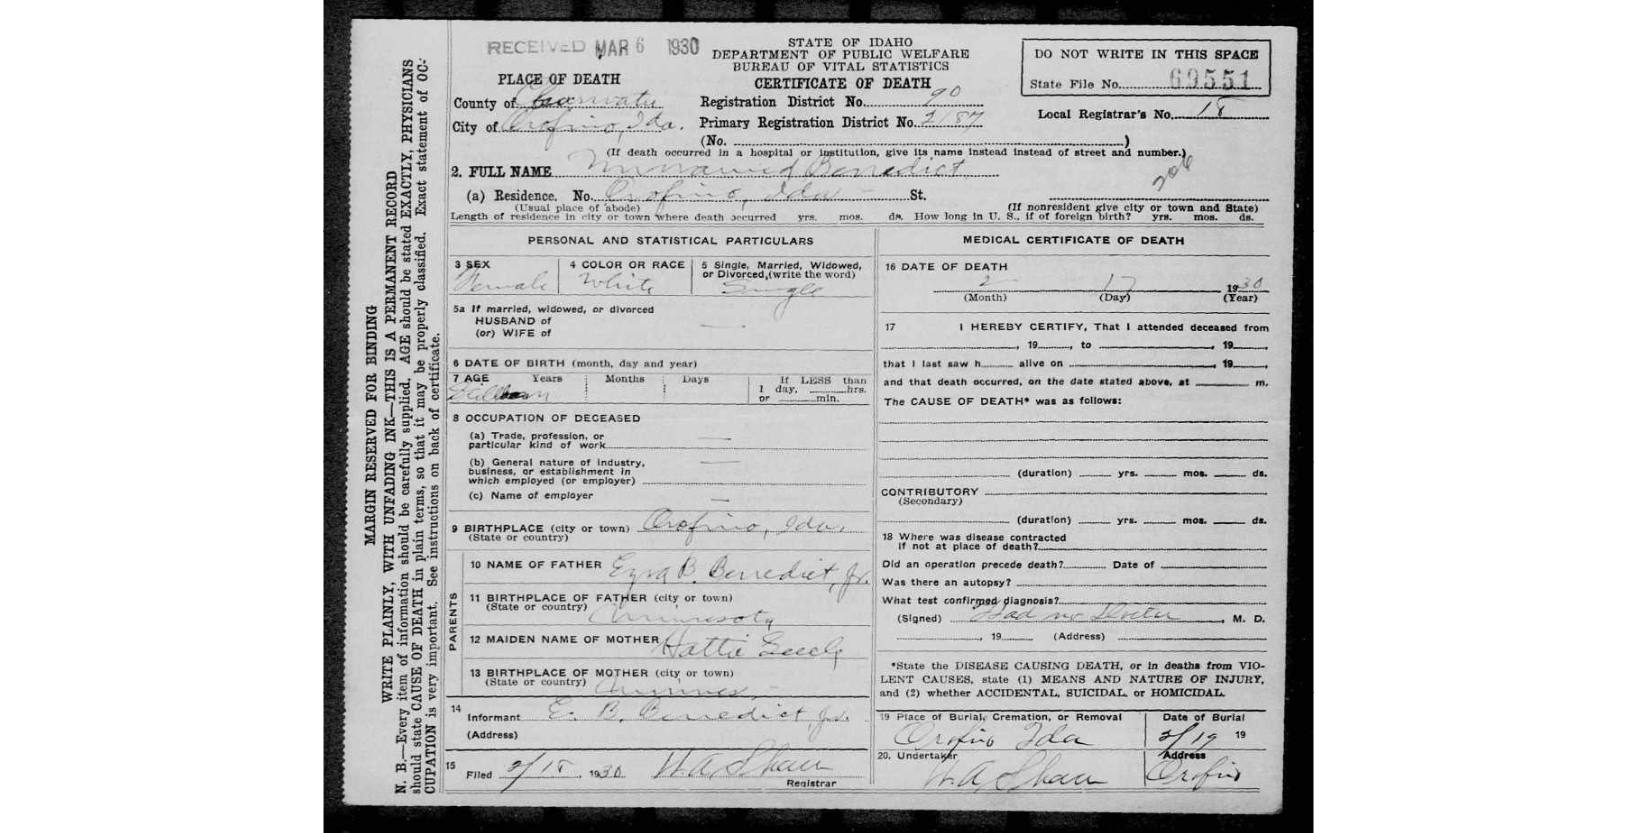 RECEIVED MAR 6 1930
STATE OF IDAHO
DEPARTMENT OF PUBLIC WELFARE
BUREAU OF VITAL STATISTICS
CERTIFICATE OF DEATH
DO NOT WRITE IN THIS SPACE
State File No. 69551
Local Registrar's No. 18
PLACE OF DEATH
County of Clearwater
Registration District No. 90
City of Orofino, Ida.
Primary Registration District No. 2187
(No. )
(If death occurred in a hospital or institution, give its name instead instead of street and number.)
2. FULL NAME Unnamed Benedict
206
(a) Residence. No. Orofino, Ida St.
(Usual place of abode)
(If nonresident give city or town and State)
Length of residence in city or town where death occurred yrs. mos. ds. How long in U. S., if of foreign birth? yrs. mos. ds.
PERSONAL AND STATISTICAL PARTICULARS
3 SEX
Female
4 COLOR OR RACE
White
5 Single, Married, Widowed,
or Divorced,(write the word)
Single
5a If married, widowed, or divorced
HUSBAND of
(or) WIFE of
6 DATE OF BIRTH (month, day and year)
7 AGE Years Months Days
If LESS than
1 day, hrs.
or min.
Stillborn
8 OCCUPATION OF DECEASED
(a) Trade, profession, or
particular kind of work
(b) General nature of industry,
business, or establishment in
which employed (or employer)
(c) Name of employer
9 BIRTHPLACE (city or town) Orofino, Ida.
(State or country)
PARENTS
10 NAME OF FATHER Ezra B. Benedict, Jr.
11 BIRTHPLACE OF FATHER (city or town)
(State or country) Minnesota
12 MAIDEN NAME OF MOTHER Hattie
13 BIRTHPLACE OF MOTHER (city or town)
(State or country)
14
Informant E. B. Benedict, Jr.
(Address)
15
Filed 2/18 1930 W.A. Shaw
Registrar
MEDICAL CERTIFICATE OF DEATH
16 DATE OF DEATH
2 17 1930
(Month) (Day) (Year)
17 I HEREBY CERTIFY, That I attended deceased from
, 19 , to , 19 ,
that I last saw h alive on , 19 ,
and that death occurred, on the date stated above, at m.
The CAUSE OF DEATH* was as follows:
(duration) yrs. mos. ds.
CONTRIBUTORY
(Secondary)
(duration) yrs. mos. ds.
18 Where was disease contracted
if not at place of death?
Did an operation precede death? Date of
Was there an autopsy?
What test confirmed diagnosis?
(Signed) Had no Doctor , M. D.
, 19 (Address)
*State the DISEASE CAUSING DEATH, or in deaths from VIO-
LENT CAUSES, state (1) MEANS AND NATURE OF INJURY,
and (2) whether ACCIDENTAL, SUICIDAL, or HOMICIDAL.
19 Place of Burial, Cremation, or Removal
Orofino Ida
Date of Burial
2/19 19
20. Undertaker
W.A. Shaw
Address
Orofino
MARGIN RESERVED FOR BINDING
WRITE PLAINLY, WITH UNFADING INK—THIS IS A PERMANENT RECORD
N. B.—Every item of information should be carefully supplied. AGE should be stated EXACTLY, PHYSICIANS
should state CAUSE OF DEATH in plain terms, so that it may be properly classified. Exact statement of OC-
CUPATION is very important. See instructions on back of certificate.